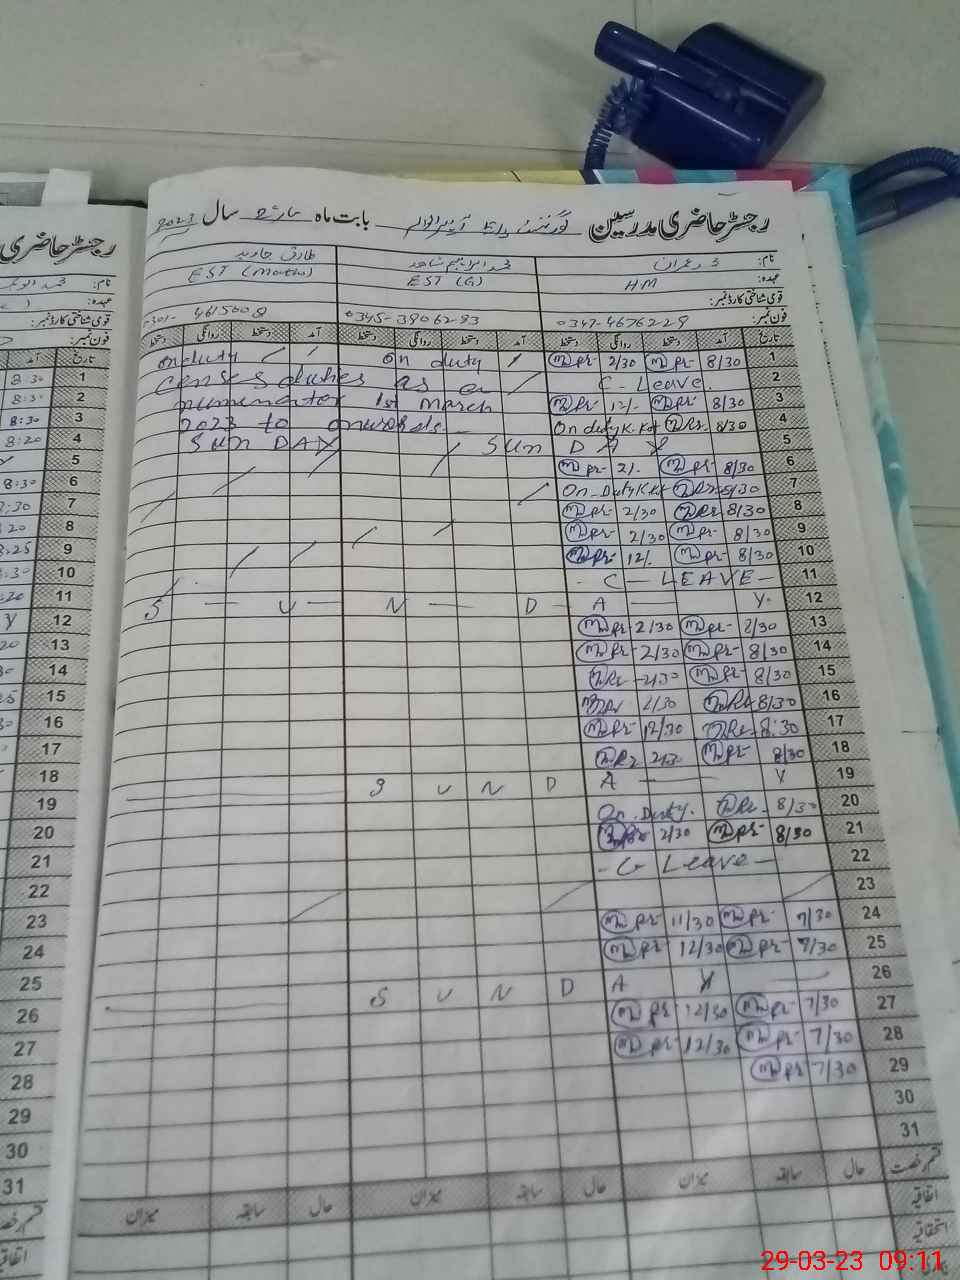 رجسٹر حاضری مدرسین گورنمنٹ بابت ماہ مارچ سال 2023
نام: محمد عمران محمد ابراہیم شاہد طارق جاوید
عہدہ: HM EST (G) EST (Maths)
قومی شناختی کارڈ نمبر:
فون نمبر: 0347-4676229 0345-3906283 0301-4615008
تاریخ آمد دستخط روانگی دستخط آمد دستخط روانگی دستخط آمد دستخط روانگی دستخط
on duty On duty pr- 2/30 pr- 8/30 1
census duties as e C- Leave. 2
numerator 1st March pr 12/- pr- 8/30 3
2023 to onwards On duty K.Kot 8/30 4
SUN DAY SUN D A Y 5
pr- 2/- pr- 8/30 6
On-Duty K.Kot 8/30 7
pr- 2/30 8/30 8
pr- 2/30 pr- 8/30 9
pr- 12/- pr- 8/30 10
- C - LEAVE - 11
S - U - N - D - A - Y- 12
pr- 2/30 pr- 8/30 13
pr- 2/30 pr- 8/30 14
2/30 pr- 8/30 15
2/30 8/30 16
pr- 12/30 8:30 17
2/30 pr- 8/30 18
S U N D A - Y 19
On. Duty. 8/30 20
2/30 pr- 8/30 21
- C Leave - 22
23
pr- 11/30 pr- 7/30 24
pr- 12/30 pr- 7/30 25
S U N D A Y 26
pr- 12/30 pr- 7/30 27
pr- 12/30 pr- 7/30 28
pr 7/30 29
30
31
قسم رخصت حال سابقہ میزان حال سابقہ میزان حال سابقہ میزان
اتفاقیہ
استحقاقیہ
رجسٹر حاضری
نام:
عہدہ:
قومی شناختی کارڈ نمبر:
فون نمبر:
تاریخ آمد
1 8:30
2 8:30
3 8:30
4 8:20
5
6 8:30
7 8:30
8
9 8:25
10
11
12 Y
13
14
15
16
17
18
19
20
21
22
23
24
25
26
27
28
29
30
31
قسم رخصت
اتفاقیہ
29-03-23 09:11